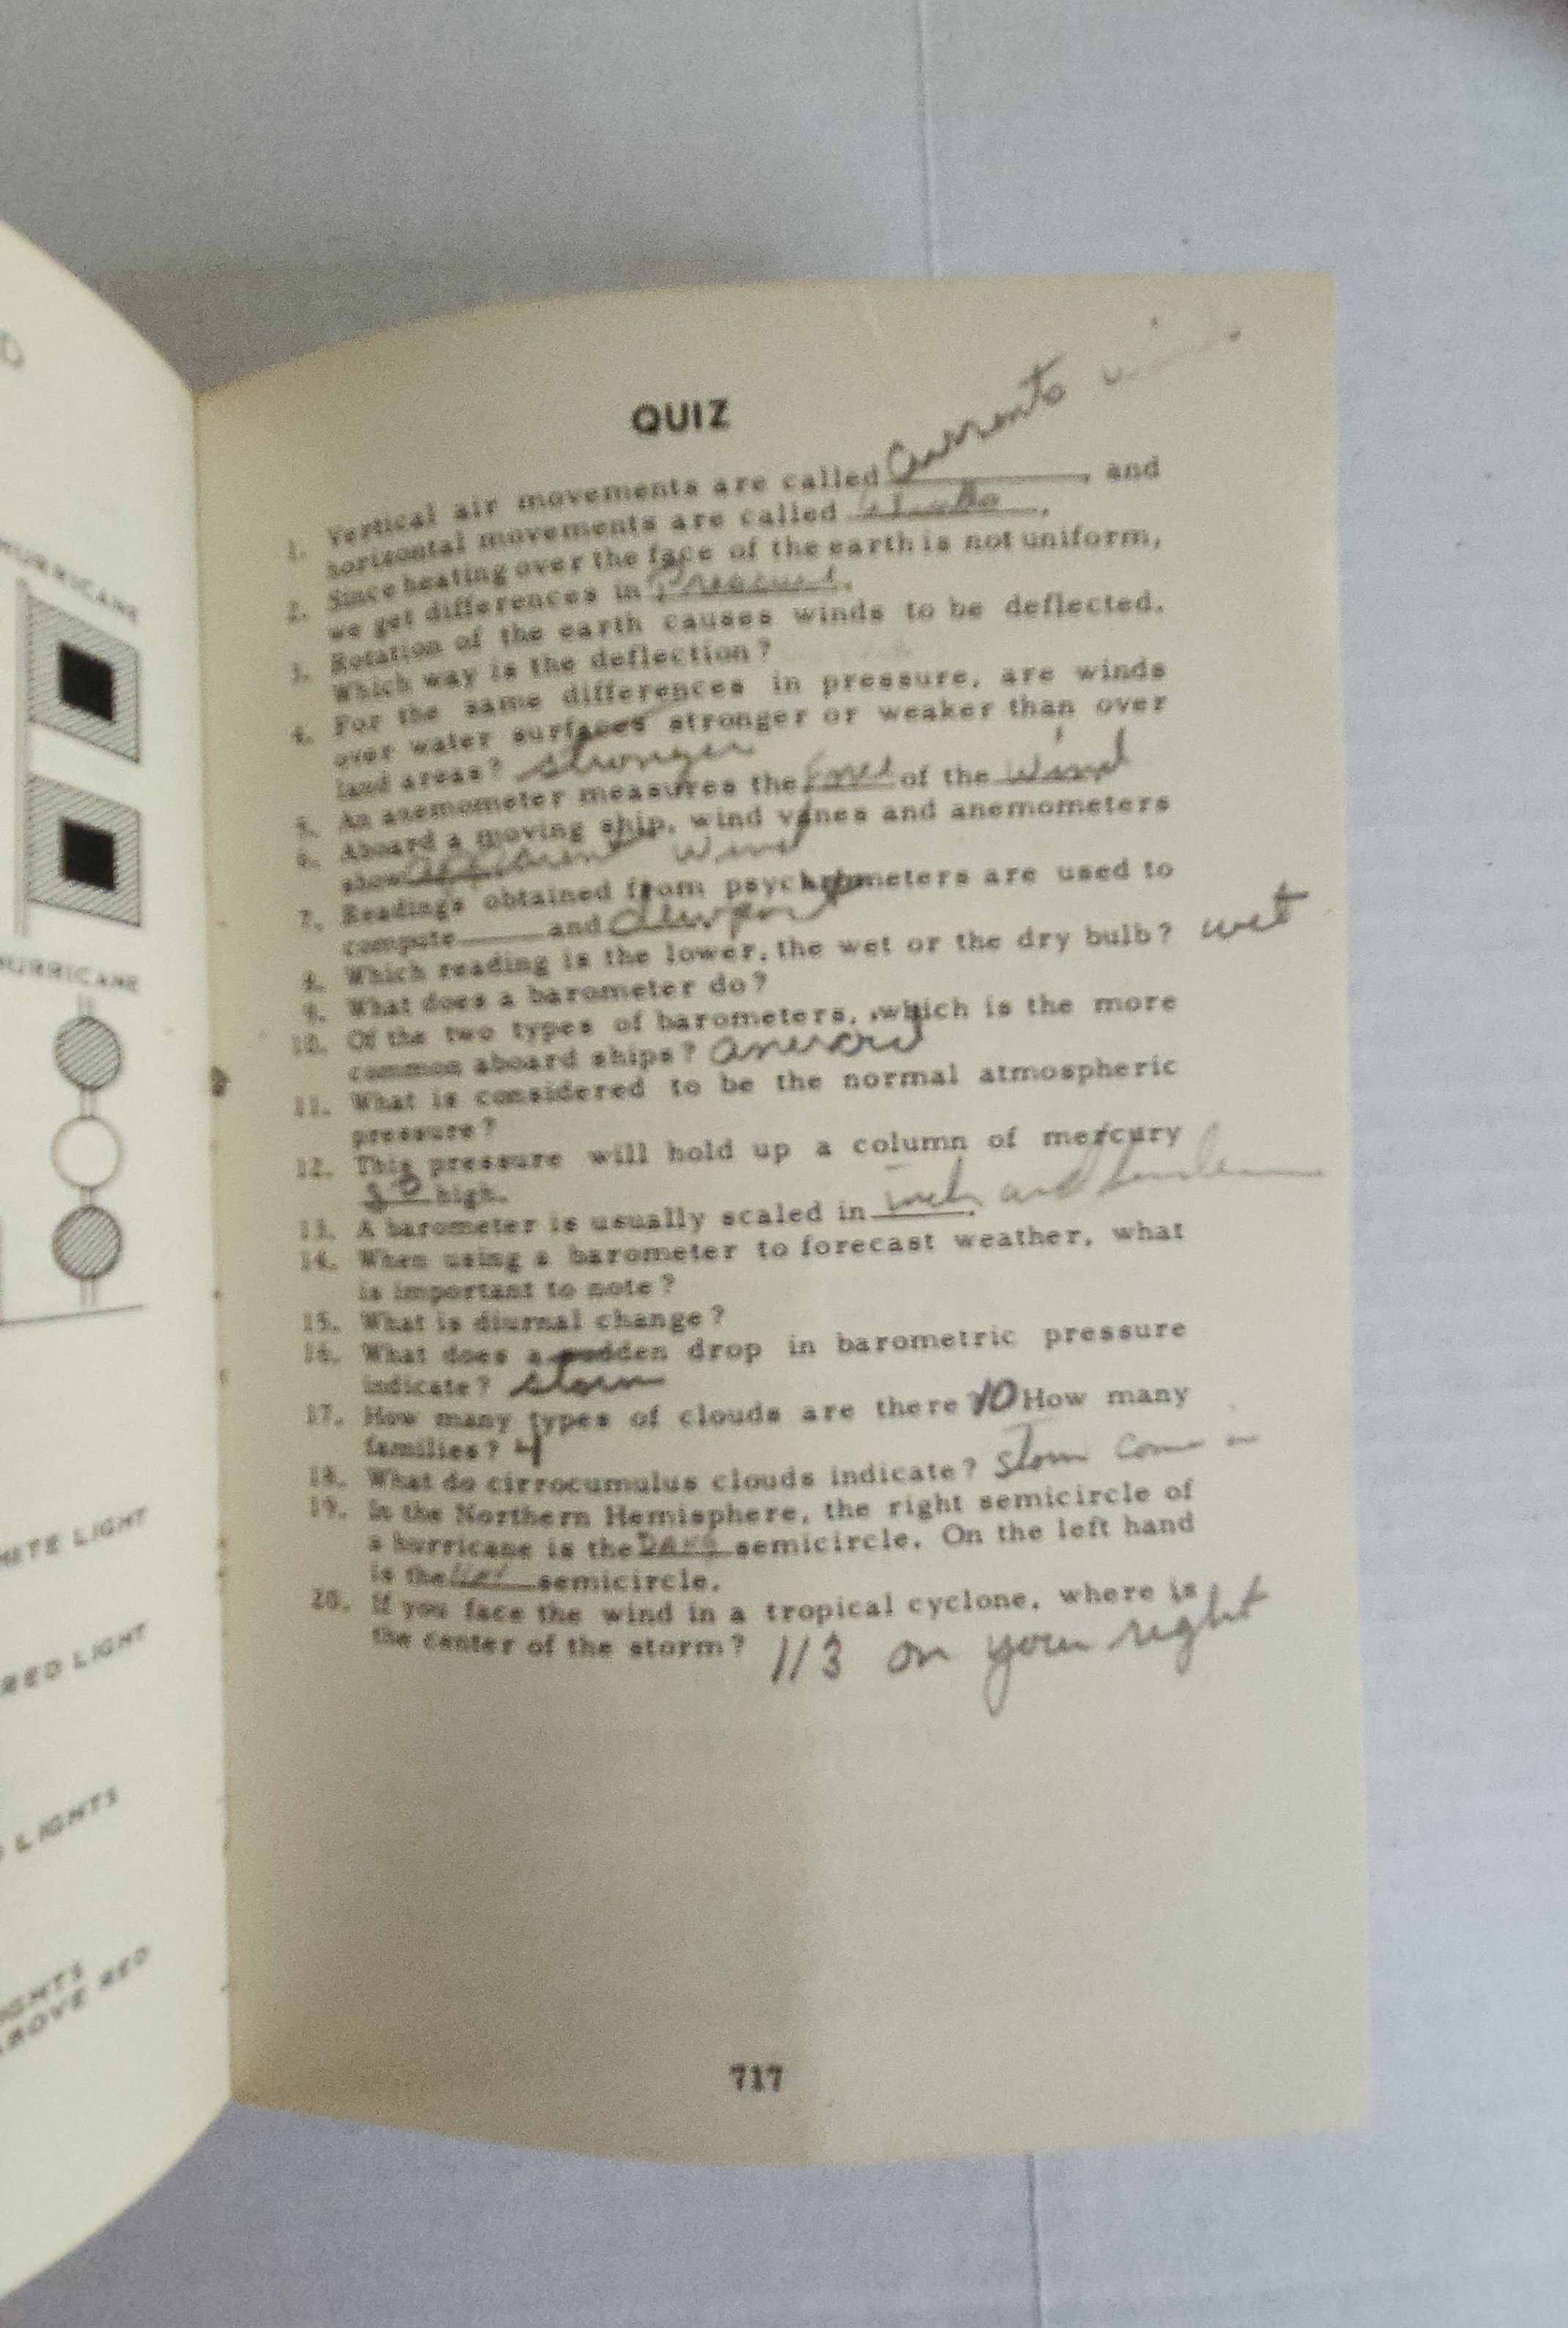 HURRICANE
HURRICANE
WHITE LIGHT
RED LIGHT
LIGHTS
LIGHTS
ABOVE RED
QUIZ
1. Vertical air movements are called Currents, and
horizontal movements are called
2. Since heating over the face of the earth is not uniform,
we get differences in Pressure.
3. Rotation of the earth causes winds to be deflected.
Which way is the deflection?
4. For the same differences in pressure, are winds
over water surfaces stronger or weaker than over
land areas? stronger
5. An anemometer measures the Force of the Wind
6. Aboard a moving ship, wind vanes and anemometers
show apparent wind
7. Readings obtained from psychrometers are used to
compute ______ and dewpoint
8. Which reading is the lower, the wet or the dry bulb? wet
9. What does a barometer do?
10. Of the two types of barometers, which is the more
common aboard ships? aneroid
11. What is considered to be the normal atmospheric
pressure?
12. This pressure will hold up a column of mercury
30 high.
13. A barometer is usually scaled in inch and
14. When using a barometer to forecast weather, what
is important to note?
15. What is diurnal change?
16. What does a sudden drop in barometric pressure
indicate? storm
17. How many types of clouds are there 10 How many
families? 4
18. What do cirrocumulus clouds indicate? storm
19. In the Northern Hemisphere, the right semicircle of
a hurricane is the semicircle. On the left hand
is the semicircle.
20. If you face the wind in a tropical cyclone, where is
the center of the storm? 113 on your right
717